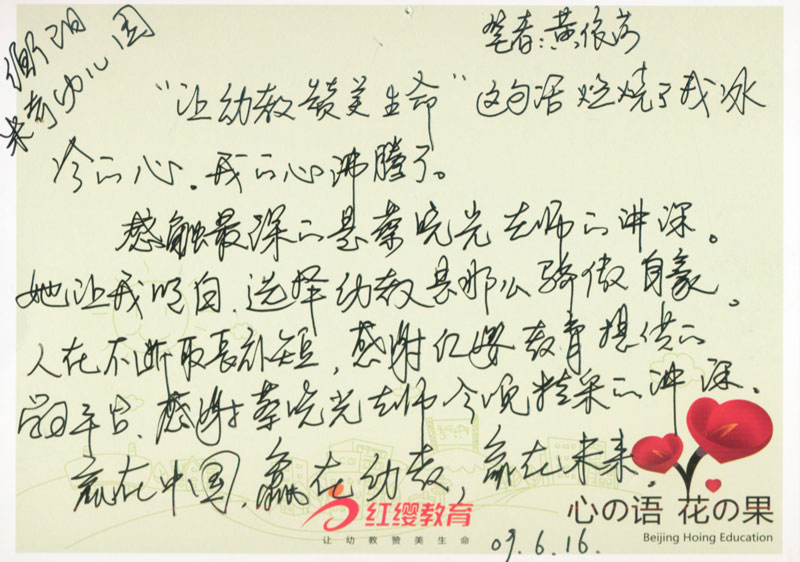 衡阳
幼儿园
笔者：黄依
“让幼教赞美生命”这句话燃烧了我冰
冷的心。我的心沸腾了。
感触最深的是蔡晓光老师的讲课。
她让我明白，选择幼教是那么骄傲自豪。
人在不断取長补短，感谢红缨教育提供的
学习平台、感谢蔡晓光老师今晚精采的讲课。
赢在中国，赢在幼教，赢在未来。
红缨教育
让幼教赞美生命
心の语 花の果
Beijing Hoing Education
09.6.16.